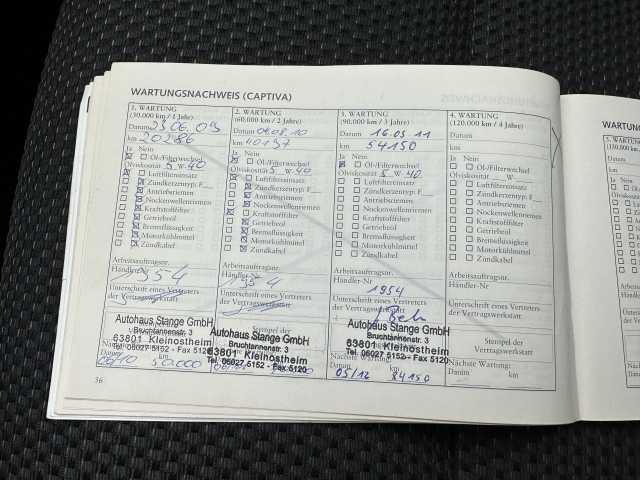 WARTUNGSNACHWEIS (CAPTIVA)
1. WARTUNG
(30.000 km / 1 Jahr)
Datum 23.06.09
km 20286
Ja Nein
Öl-/Filterwechsel
Ölviskosität 5 W-40
Luftfiltereinsatz
Zündkerzentyp: F
Antriebsriemen
Nockenwellenriemen
Kraftstofffilter
Getriebeöl
Bremsflüssigkeit
Motorkühlmittel
Zündkabel
Arbeitsauftragsnr.
Händler-Nr
1954
Unterschrift eines Vertreters
der Vertragswerkstatt
Autohaus Stange GmbH
Bruchtannenstr. 3
63801 Kleinostheim
Tel. 06027 5152 - Fax 5120
Datum km
2. WARTUNG
(60.000 km / 2 Jahre)
Datum 04.08.10
km 40197
Ja Nein
Öl-/Filterwechsel
Ölviskosität 5 W-40
Luftfiltereinsatz
Zündkerzentyp: F
Antriebsriemen
Nockenwellenriemen
Kraftstofffilter
Getriebeöl
Bremsflüssigkeit
Motorkühlmittel
Zündkabel
Arbeitsauftragsnr.
Händler-Nr
Unterschrift eines Vertreters
der Vertragswerkstatt
Stempel der
Autohaus Stange GmbH
Bruchtannenstr. 3
63801 Kleinostheim
Tel. 06027 5152 - Fax 5120
3. WARTUNG
(90.000 km / 3 Jahre)
Datum 16.05.11
km 54150
Ja Nein
Öl-/Filterwechsel
Ölviskosität 5 W-40
Luftfiltereinsatz
Zündkerzentyp: F
Antriebsriemen
Nockenwellenriemen
Kraftstofffilter
Getriebeöl
Bremsflüssigkeit
Motorkühlmittel
Zündkabel
Arbeitsauftragsnr.
Händler-Nr
1954
Unterschrift eines Vertreters
der Vertragswerkstatt
Autohaus Stange GmbH
Bruchtannenstr. 3
63801 Kleinostheim
Tel. 06027 5152 - Fax 5120
Datum km
05/12 84150
4. WARTUNG
(120.000 km / 4 Jahre)
Datum
km
Ja Nein
Öl-/Filterwechsel
Ölviskosität W
Luftfiltereinsatz
Zündkerzentyp: F
Antriebsriemen
Nockenwellenriemen
Kraftstofffilter
Getriebeöl
Bremsflüssigkeit
Motorkühlmittel
Zündkabel
Arbeitsauftragsnr.
Händler-Nr
Unterschrift eines Vertreters
der Vertragswerkstatt
Stempel der
Vertragswerkstatt
Nächste Wartung:
Datum km
36